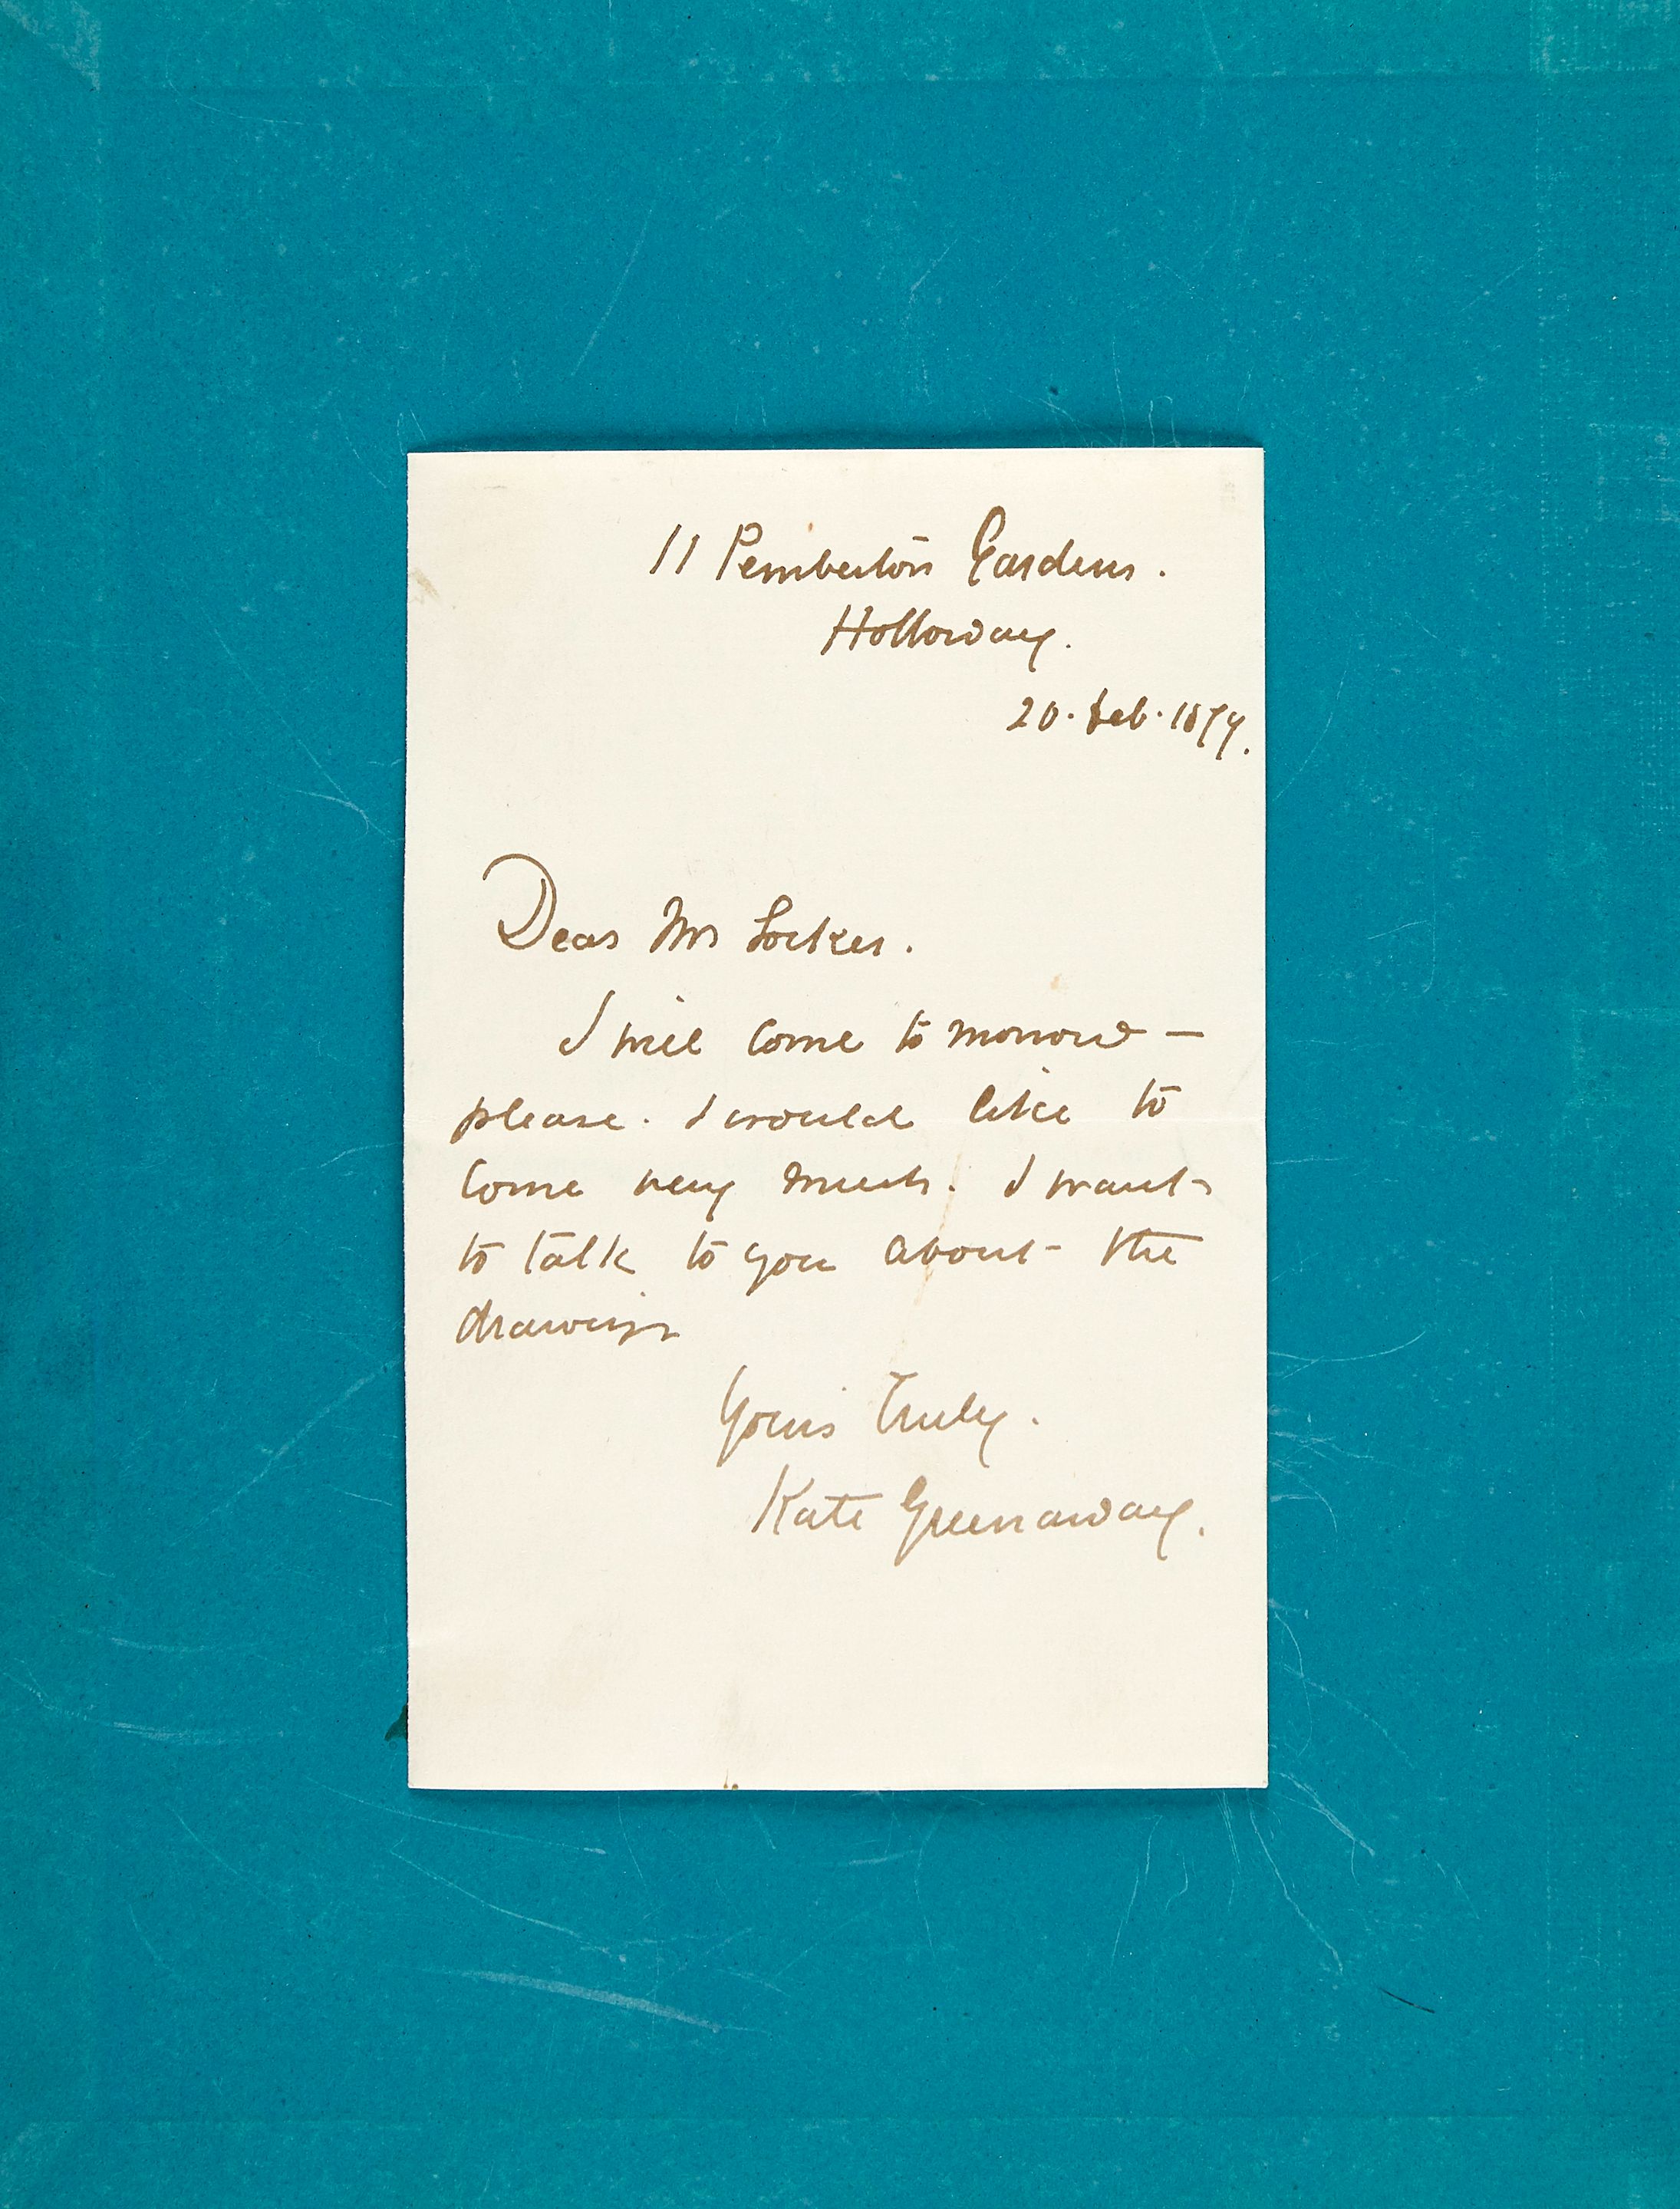 11 Pemberton Gardens.
Holloway.
20. Feb. 1879.
Dear Mr Locker.
I will come to morrow —
please. I would like to
come very much. I want
to talk to you about the
drawings
Yours truly.
Kate Greenaway.